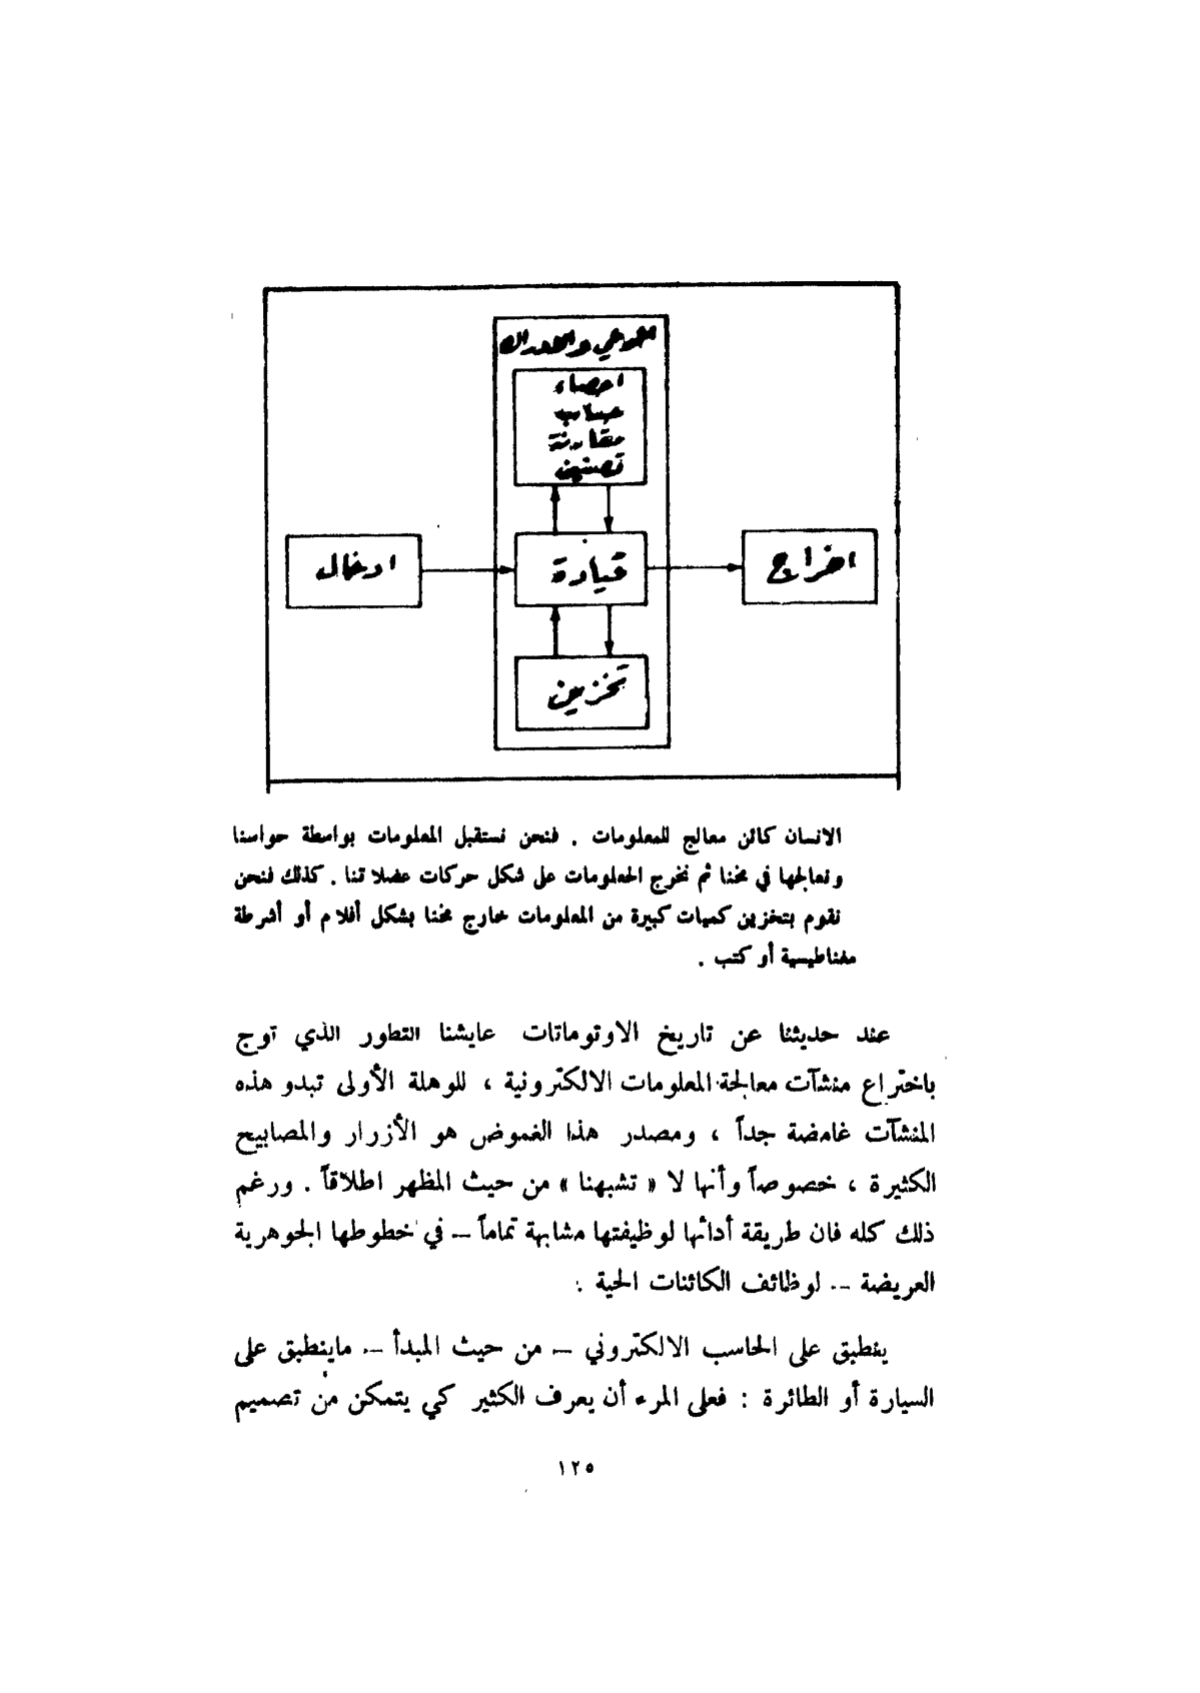 الوعي والادراك
احصاء
حساب
مقارنة
تصنيف
ادخال
قيادة
اخراج
تخزين
الانسان كائن معالج للمعلومات . فنحن نستقبل المعلومات بواسطة حواسنا
ونعالجها في مخنا ثم نخرج المعلومات على شكل حركات عضلاتنا . كذلك فنحن
نقوم بتخزين كميات كبيرة من المعلومات خارج مخنا بشكل أفلام أو أشرطة
مغناطيسية أو كتب .
عند حديثنا عن تاريخ الاوتوماتات عايشنا التطور الذي توج
باختراع منشآت معالجة المعلومات الالكترونية ، للوهلة الأولى تبدو هذه
المنشآت غامضة جداً ، ومصدر هذا الغموض هو الأزرار والمصابيح
الكثيرة ، خصوصاً وأنها لا « تشبهنا » من حيث المظهر اطلاقاً . ورغم
ذلك كله فان طريقة أدائها لوظيفتها مشابهة تماماً – في خطوطها الجوهرية
العريضة – لوظائف الكائنات الحية .
ينطبق على الحاسب الالكتروني – من حيث المبدأ – ماينطبق على
السيارة أو الطائرة : فعلى المرء أن يعرف الكثير كي يتمكن من تصميم
١٢٥